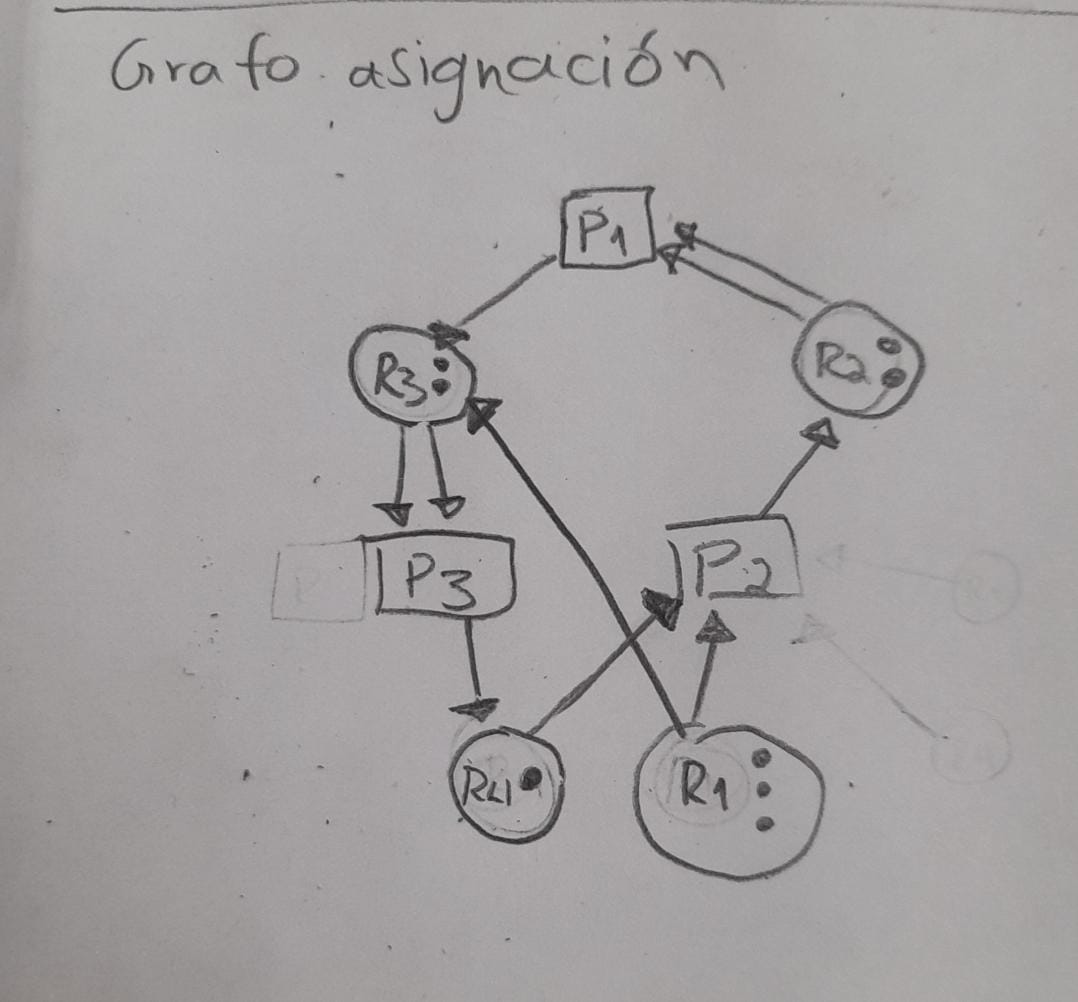 Grafo asignación
P1
R3
R2
P3
P2
R4
R1